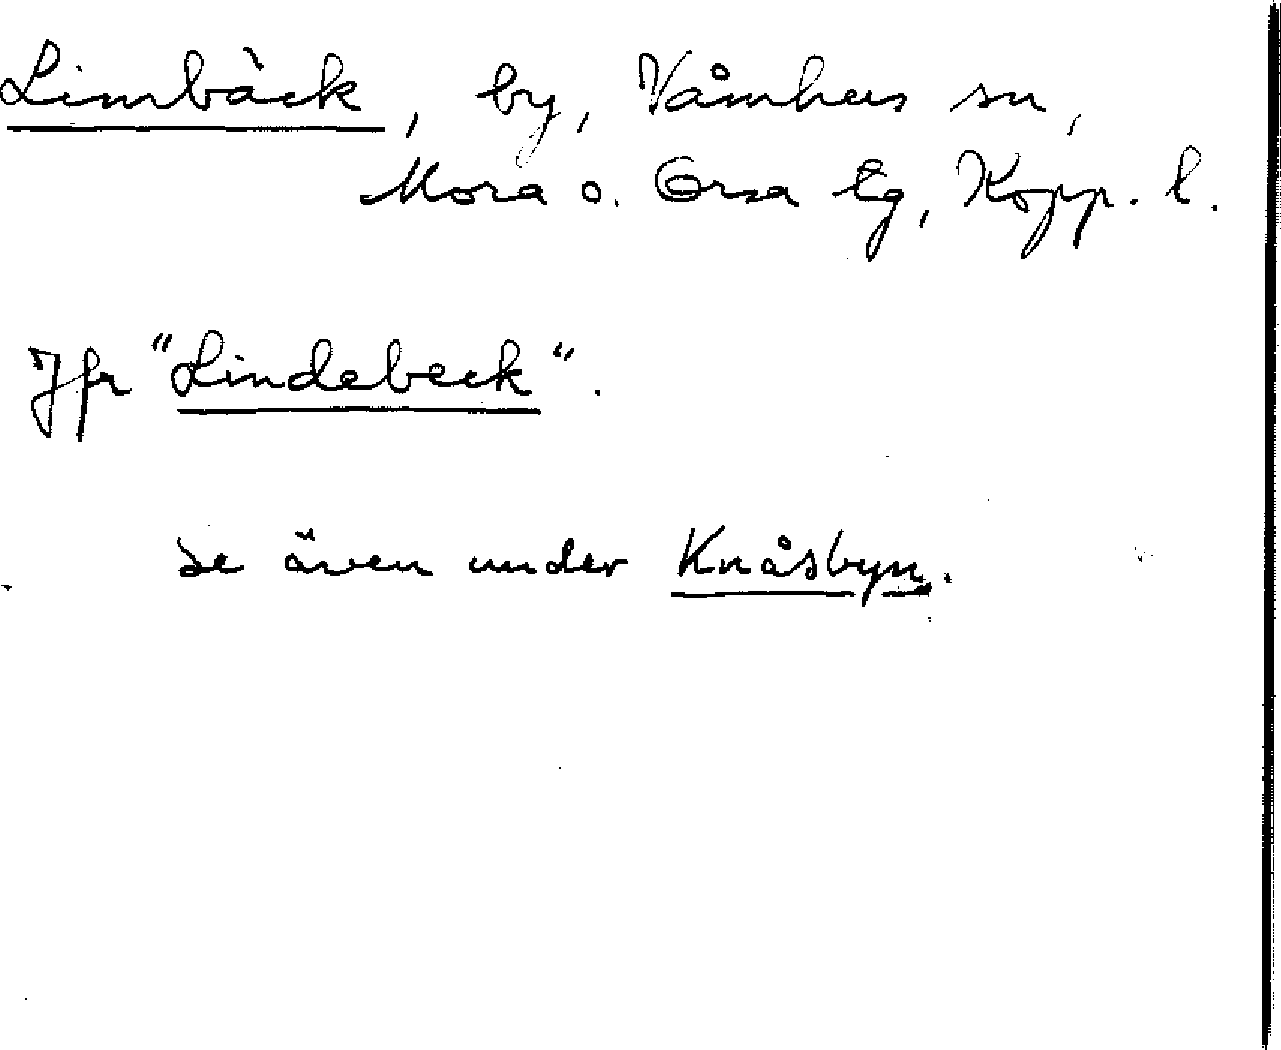 Limbäck, by, Våmhus sn,
Mora o. Orsa tg, Kopp. l.
Jfr "Lindebeck".
Se även under Knåsbyn.